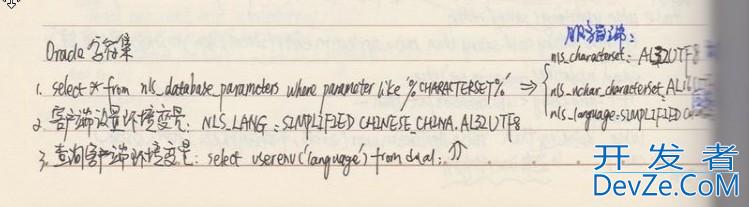 Oracle字符集
服务器端:
nls_characterset: AL32UTF8
1. select * from nls_database_parameters where parameter like '%CHARACTERSET%' ⇒ {
nls_nchar_characterset: AL
nls_language: SIMPLIFIED
2. 客户端设置环境变量: NLS_LANG: SIMPLIFIED CHINESE_CHINA.AL32UTF8
3. 查询客户端环境变量: select userenv('language') from dual;
开发者
DevZe.CoM